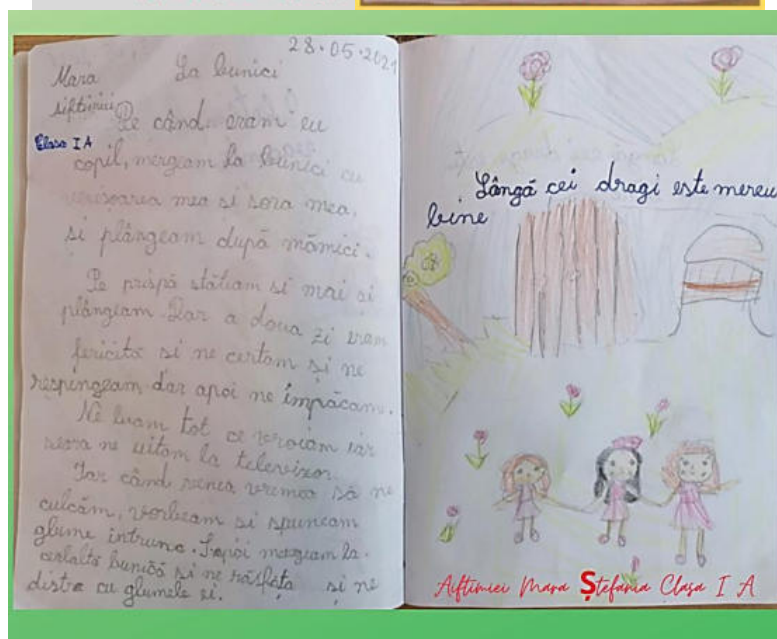 28.05.2021
Mara La bunici
Aiftimiei
Pe când eram eu
Clasa I A
copil, mergeam la bunici cu
verișoarea mea si sora mea,
și plângeam după mămici.
Pe prispă stăteam si mai si
plângeam. Dar a doua zi eram
fericită si ne certam și ne
respingeam dar apoi ne împăcam.
Ne luam tot ce vroiam iar
seara ne uitam la televizor.
Iar când venea vremea să ne
culcăm, vorbeam si spuneam
glume întruna. Și apoi mergeam la
cealaltă bunică si ne răsfăța și ne
distra cu glumele ei.
Lângă cei dragi este mereu
bine
Aiftimiei Mara Ștefania Clasa I A